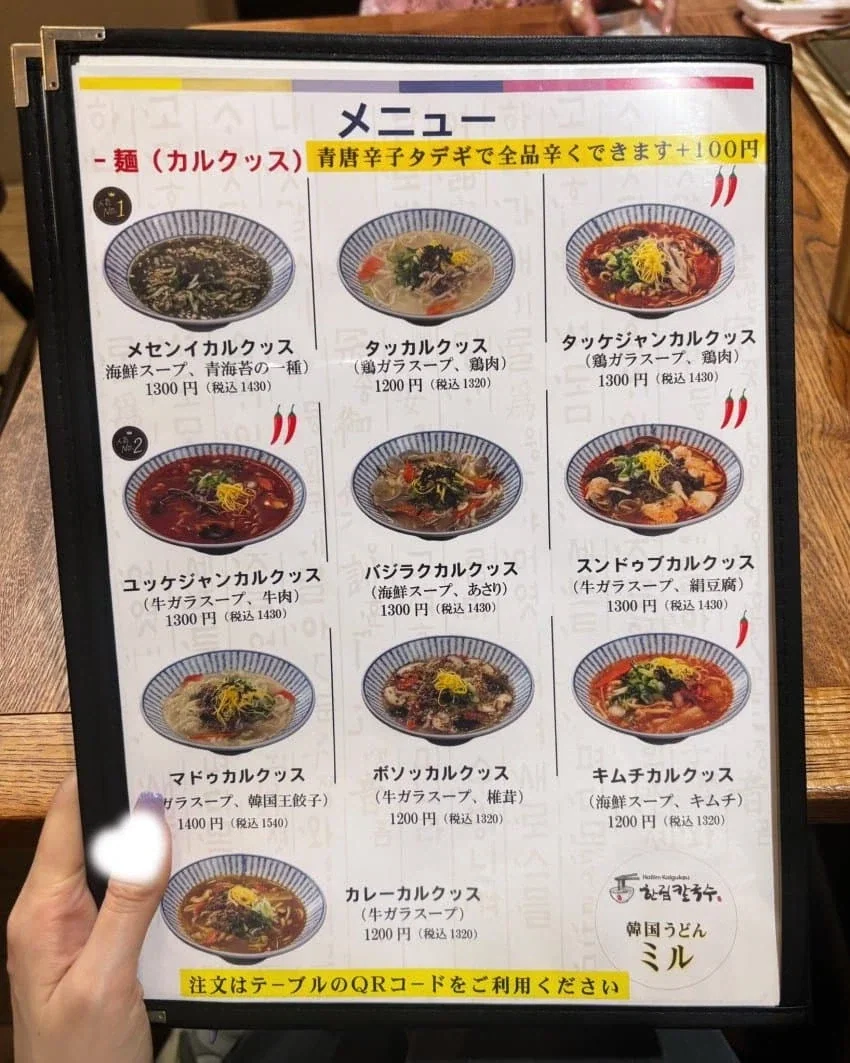 メニュー
- 麺（カルクッス）
青唐辛子タデギで全品辛くできます+100円
人気 No.1
メセンイカルクッス
海鮮スープ、青海苔の一種）
1300 円（税込 1430）
タッカルクッス
（鶏ガラスープ、鶏肉）
1200 円（税込 1320）
タッケジャンカルクッス
（鶏ガラスープ、鶏肉）
1300 円（税込 1430）
人気 No.2
ユッケジャンカルクッス
（牛ガラスープ、牛肉）
1300 円（税込 1430）
バジラクカルクッス
（海鮮スープ、あさり）
1300 円（税込 1430）
スンドゥブカルクッス
（牛ガラスープ、絹豆腐）
1300 円（税込 1430）
マドゥカルクッス
ガラスープ、韓国王餃子）
1400 円（税込 1540）
ボソッカルクッス
（牛ガラスープ、椎茸）
1200 円（税込 1320）
キムチカルクッス
（海鮮スープ、キムチ）
1200 円（税込 1320）
カレーカルクッス
（牛ガラスープ）
1200 円（税込 1320）
Hallim Kalguksu
한림칼국수
韓国うどん
ミル
注文はテーブルのQRコードをご利用ください